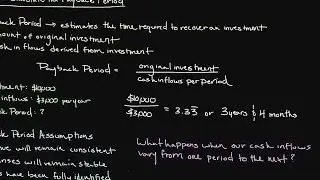 for Payback Period
back Period → estimates the time required to recover an investment
ount of original investment
ash inflows derived from investment
Payback Period = original investment
cashinflows per period
tment: $10,000
inflows: $3,000 per year
Period: ?
$10,000
$3,000
= 3.33 or 3 years & 4 months
k Period Assumptions
ve will remain consistent
nses will remain stable
s have been fully identified
What happens when our cash inflows
vary from one period to the next?